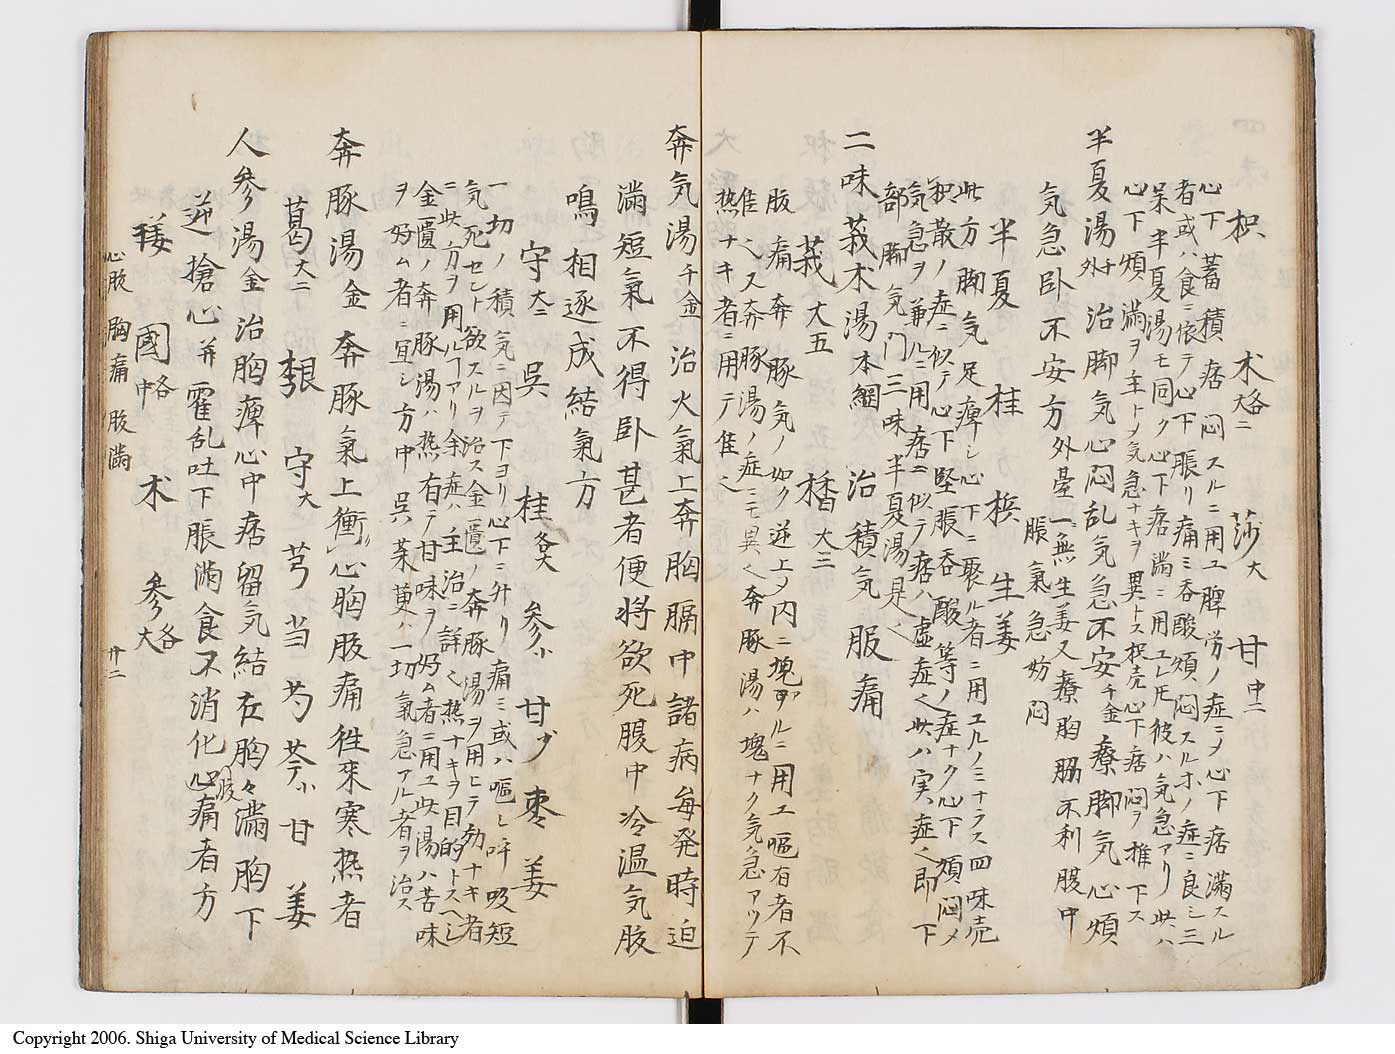 枳 朮各大二 莎大 甘中二
心下蓄積痞悶スルニ用ユ脾労ノ症ニメ心下痞満スル
者或ハ食ニ依テ心下脹リ痛ミ呑酸煩悶スルホノ症ニ良シ三
呆半夏湯モ同ク心下痞満ニ用ユレ𪜈彼ハ気急アリ此ハ
心下煩満ヲ主トメ気急ナキヲ異トス枳壳心下痞悶ヲ推下ス
半夏湯外千 治脚気心悶乱気急不安千金療脚気心煩
気急臥不安方外臺一ニ無生姜又療胸脇不利腹中
脹氣急妨悶
半夏 桂 梹 生姜
此方脚気足痺シ心下ニ聚ル者ニ用ユルノミナラス四味売
積散ノ症ニ似テ心下堅脹呑酸等ノ症ナク心下煩悶メ
気急ヲ兼ルニ用痞ニ似テ痞ハ虚症也此ハ実症也即下
部脚気門三味半夏湯是也
二味莪朮湯本綱 治積気服痛
莪大五 橘大三
腹痛奔豚気ノ如ク逆上メ内ニ塊アルニ用ユ嘔有者不
佳也又奔豚湯ノ症ニモ異也奔豚湯ハ塊ナク気急アツテ
熱ナキ者ニ用テ佳也
奔気湯千金 治火氣上奔胸膈中諸病毎発時迫
満短氣不得臥甚者便将欲死腹中冷温気腹
鳴相逐成結氣方
守大二 呉 桂各大 参小 甘少 棗 姜
一切ノ積気ニ因テ下ヨリ心下ニ升リ痛ミ或ハ嘔シ呼吸短
気死セント欲スルヲ治ス金匱ノ奔豚湯ヲ用ヒテ効ナキ者
ニ此方ヲ用ルヿアリ余症ハ主治ニ詳也熱ナキヲ目的トスヘシ
金匱ノ奔豚湯ハ熱有テ甘味ヲ好ム者ニ用ユ此湯ハ苦味
ヲ好ム者ニ宜シ方中呉茱萸ハ一切氣急アル者ヲ治ス
奔豚湯金 奔豚氣上衝心胸腹痛徃来寒熱者
葛大二 根 守大 芎 当 芍 芩小 甘 姜
人参湯金 治胸痺心中痞留気結在胸々満胸下
逆搶心并霍乱吐下脹満食不消化心腹痛者方
姜 國各中 朮 参各大
心腹 胸痛 腹満
廿二
Copyright 2006. Shiga University of Medical Science Library